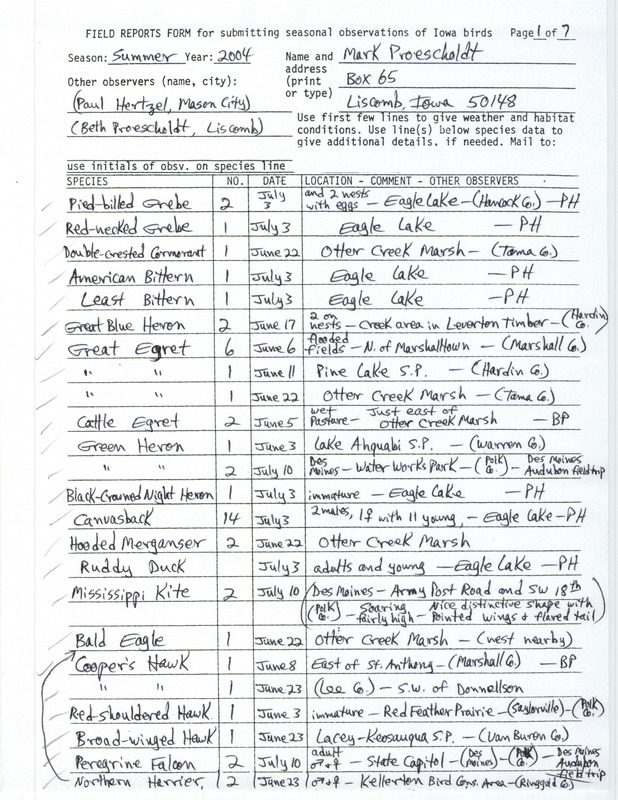 FIELD REPORTS FORM for submitting seasonal observations of Iowa birds Page 1 of 7
Season: Summer Year: 2004
Name and address (print or type) Mark Proescholdt
Box 65
Liscomb, Iowa 50148
Other observers (name, city):
(Paul Hertzel, Mason City)
(Beth Proescholdt, Liscomb)
Use first few lines to give weather and habitat
conditions. Use line(s) below species data to
give additional details, if needed. Mail to:
use initials of obsv. on species line
SPECIES NO. DATE LOCATION - COMMENT - OTHER OBSERVERS
Pied-billed Grebe 2 July 3 and 2 nests with eggs - Eagle Lake - (Hancock Co.) - PH
Red-necked Grebe 1 July 3 Eagle Lake - PH
Double-crested Cormorant 1 June 22 Otter Creek Marsh - (Tama Co.)
American Bittern 1 July 3 Eagle Lake - PH
Least Bittern 1 July 3 Eagle Lake - PH
Great Blue Heron 2 June 17 2 on nests - Creek area in Leverton Timber - (Hardin Co.)
Great Egret 6 June 6 flooded fields - N. of Marshalltown - (Marshall Co.)
" " 1 June 11 Pine Lake S.P. - (Hardin Co.)
" " 1 June 22 Otter Creek Marsh - (Tama Co.)
Cattle Egret 2 June 5 wet Pasture - Just east of Otter Creek Marsh - BP
Green Heron 1 June 3 Lake Ahquabi S.P. - (Warren Co.)
" " 2 July 10 Des Moines - Water Works Park - (Polk Co.) - Des Moines Audubon field trip
Black-Crowned Night Heron 1 July 3 immature - Eagle Lake - PH
Canvasback 14 July 3 2 males, 1♀ with 11 young, - Eagle Lake - PH
Hooded Merganser 2 June 22 Otter Creek Marsh
Ruddy Duck July 3 adults and young - Eagle Lake - PH
Mississippi Kite 2 July 10 Des Moines - Army Post Road and SW 18th
(Polk Co.) - Soaring fairly high - Nice distinctive shape with Pointed wings & flared tail
Bald Eagle 1 June 22 Otter Creek Marsh - (nest nearby)
Cooper's Hawk 1 June 8 East of St. Anthony - (Marshall Co.) - BP
" " 1 June 23 (Lee Co.) - S.W. of Donnellson
Red-shouldered Hawk 1 June 3 immature - Red Feather Prairie - (Saylorville) - (Polk Co.)
Broad-winged Hawk 1 June 23 Lacey-Keosauqua S.P. - (Van Buren Co.)
Peregrine Falcon 2 July 10 adult ♂+♀ - State Capitol - (Des Moines) - (Polk Co.) - Des Moines Audubon field trip
Northern Harrier, 2 June 23 ♂+♀ - Kellerton Bird Cons. Area - (Ringgold Co.)